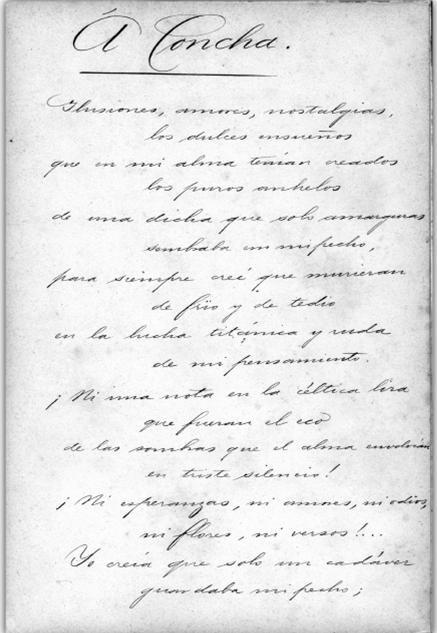 Á Concha.
Ilusiones, amores, nostalgias,
los dulces ensueños
que en mi alma tenían creados
los puros anhelos
de una dicha que solo amarguras
sembraba en mi pecho,
para siempre creé que murieran
de frio y de tedio
en la lucha titánica y ruda
de mi pensamiento.
¡Ni una nota en la céltica lira
que fueran el eco
de las sombras que el alma envolvían
en triste silencio!
¡Ni esperanzas, ni amores, ni odios,
ni flores, ni versos!...
Yo creía que solo un cadáver
guardaba mi pecho;